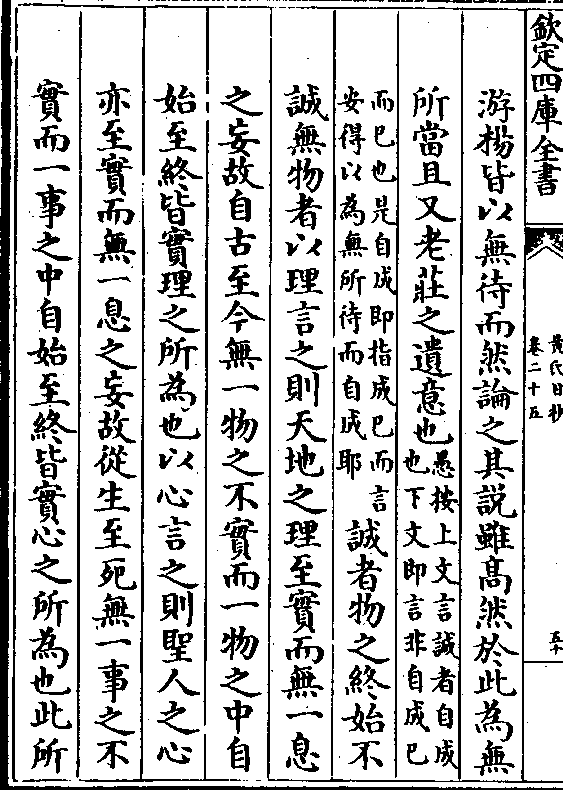 欽定四庫全書
黄氏日抄
卷二十五
五十
游楊皆以無待而然論之其説雖髙然於此為無
所當且又老莊之遺意也愚按上文言誠者自成
也下文即言非自成已
而已也是自成即指成已而言
安得以為無所待而自成耶
誠者物之終始不
誠無物者以理言之則天地之理至實而無一息
之妄故自古至今無一物之不實而一物之中自
始至終皆實理之所為也以心言之則聖人之心
亦至實而無一息之妄故從生至死無一事之不
實而一事之中自始至終皆實心之所為也此所